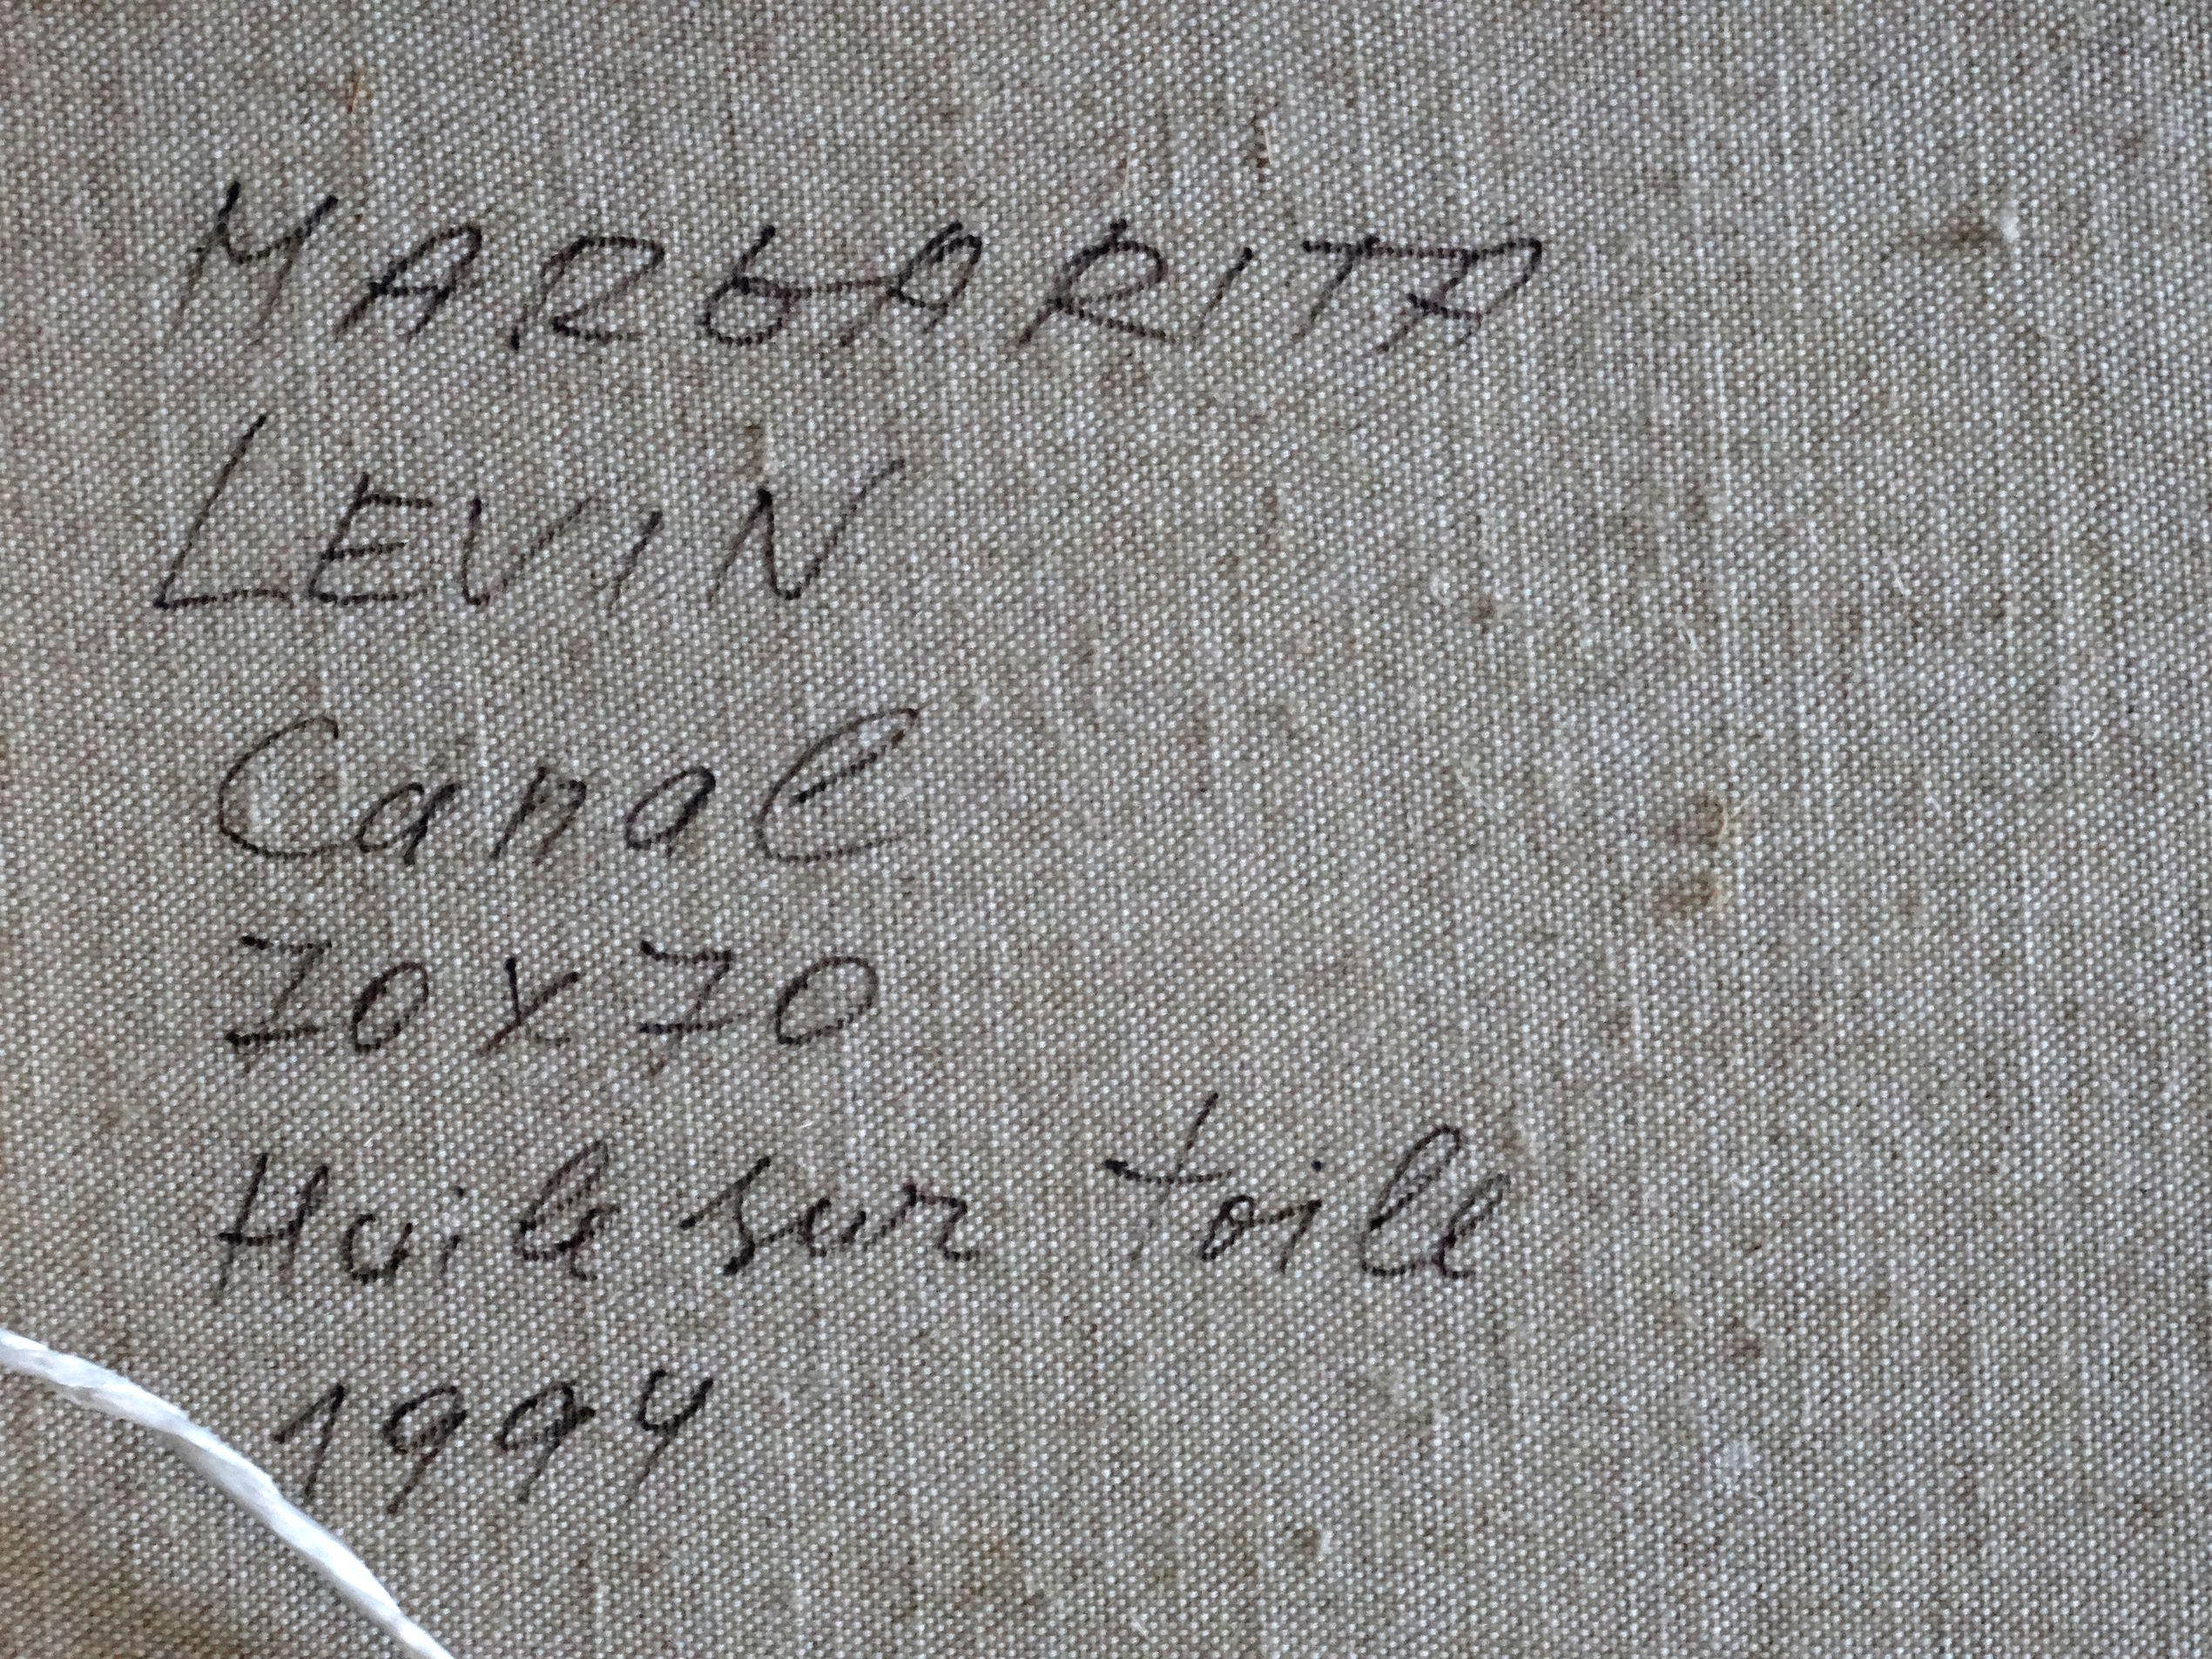 MARGARITA
LEVIN
Canal
70x70
Huile sur toile
1994